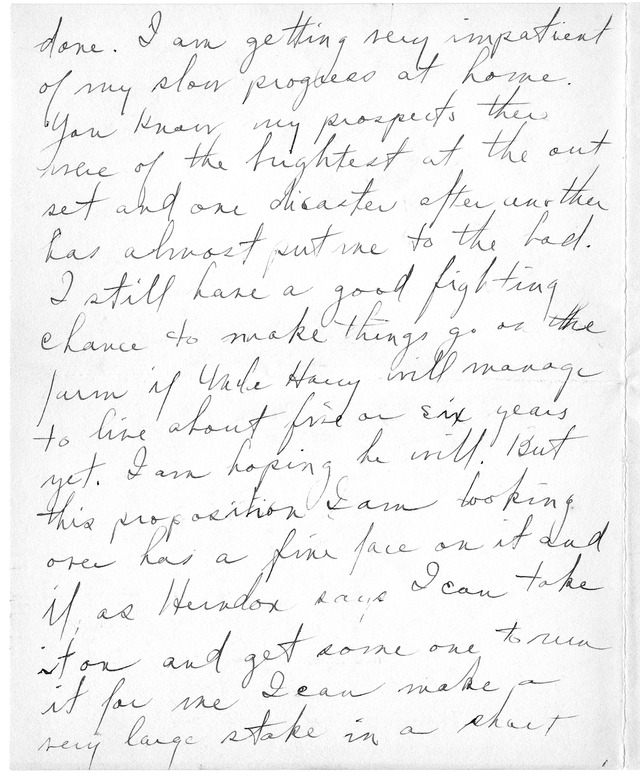 done. I am getting very impatient
of my slow progress at home.
You know my prospects there
were of the brightest at the out
set and one disaster after another
has almost put me to the bad.
I still have a good fighting
chance to make things go on the
farm if Uncle Harry will manage
to live about five or six years
yet. I am hoping he will. But
this proposition I am looking
over has a fine face on it and
if, as Herndon says I can take
it on and get some one to run
it for me I can make a
very large stake in a short